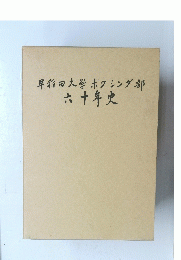 早稲田大学ボクシング部
六十年史